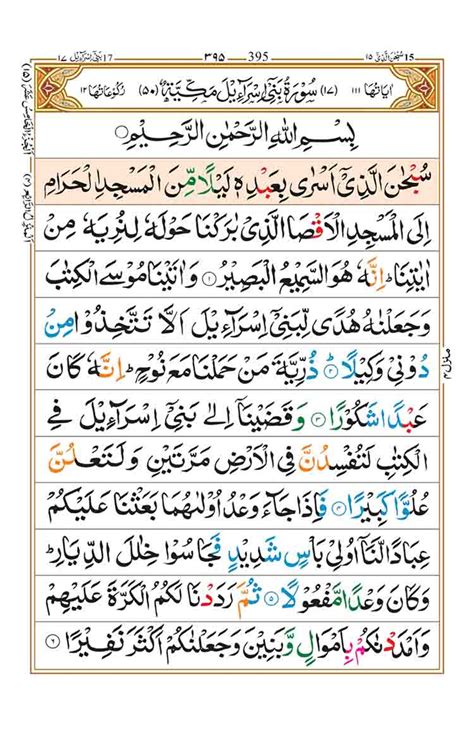 ١٧ بنی اسرآءیل 17 ٣٩٥ 395 سبحن الذی ١٥ 15
اٰیاتها ١١١ (١٧) سُوْرَةُ بَنِیْۤ اِسْرَآءِیْلَ مَكِّیَّةٌ (٥٠) رُكُوْعَاتُهَا ١٢
بِسْمِ اللّٰهِ الرَّحْمٰنِ الرَّحِیْمِ
سُبْحٰنَ الَّذِیْۤ اَسْرٰى بِعَبْدِهٖ لَیْلًا مِّنَ الْمَسْجِدِ الْحَرَامِ
اِلَى الْمَسْجِدِ الْاَقْصَا الَّذِیْ بٰرَكْنَا حَوْلَهٗ لِنُرِیَهٗ مِنْ
اٰیٰتِنَاؕ اِنَّهٗ هُوَ السَّمِیْعُ الْبَصِیْرُ ١ وَ اٰتَیْنَا مُوْسَى الْكِتٰبَ
وَ جَعَلْنٰهُ هُدًى لِّبَنِیْۤ اِسْرَآءِیْلَ اَلَّا تَتَّخِذُوْا مِنْ
دُوْنِیْ وَكِیْلًاؕ ٢ ذُرِّیَّةَ مَنْ حَمَلْنَا مَعَ نُوْحٍؕ اِنَّهٗ كَانَ
عَبْدًا شَكُوْرًا ٣ وَ قَضَیْنَاۤ اِلٰى بَنِیْۤ اِسْرَآءِیْلَ فِی
الْكِتٰبِ لَتُفْسِدُنَّ فِی الْاَرْضِ مَرَّتَیْنِ وَ لَتَعْلُنَّ
عُلُوًّا كَبِیْرًا ٤ فَاِذَا جَآءَ وَعْدُ اُوْلٰىهُمَا بَعَثْنَا عَلَیْكُمْ
عِبَادًا لَّنَاۤ اُولِیْ بَاْسٍ شَدِیْدٍ فَجَاسُوْا خِلٰلَ الدِّیَارِؕ
وَ كَانَ وَعْدًا مَّفْعُوْلًا ٥ ثُمَّ رَدَدْنَا لَكُمُ الْكَرَّةَ عَلَیْهِمْ
وَ اَمْدَدْنٰكُمْ بِاَمْوَالٍ وَّ بَنِیْنَ وَ جَعَلْنٰكُمْ اَكْثَرَ نَفِیْرًا ٦